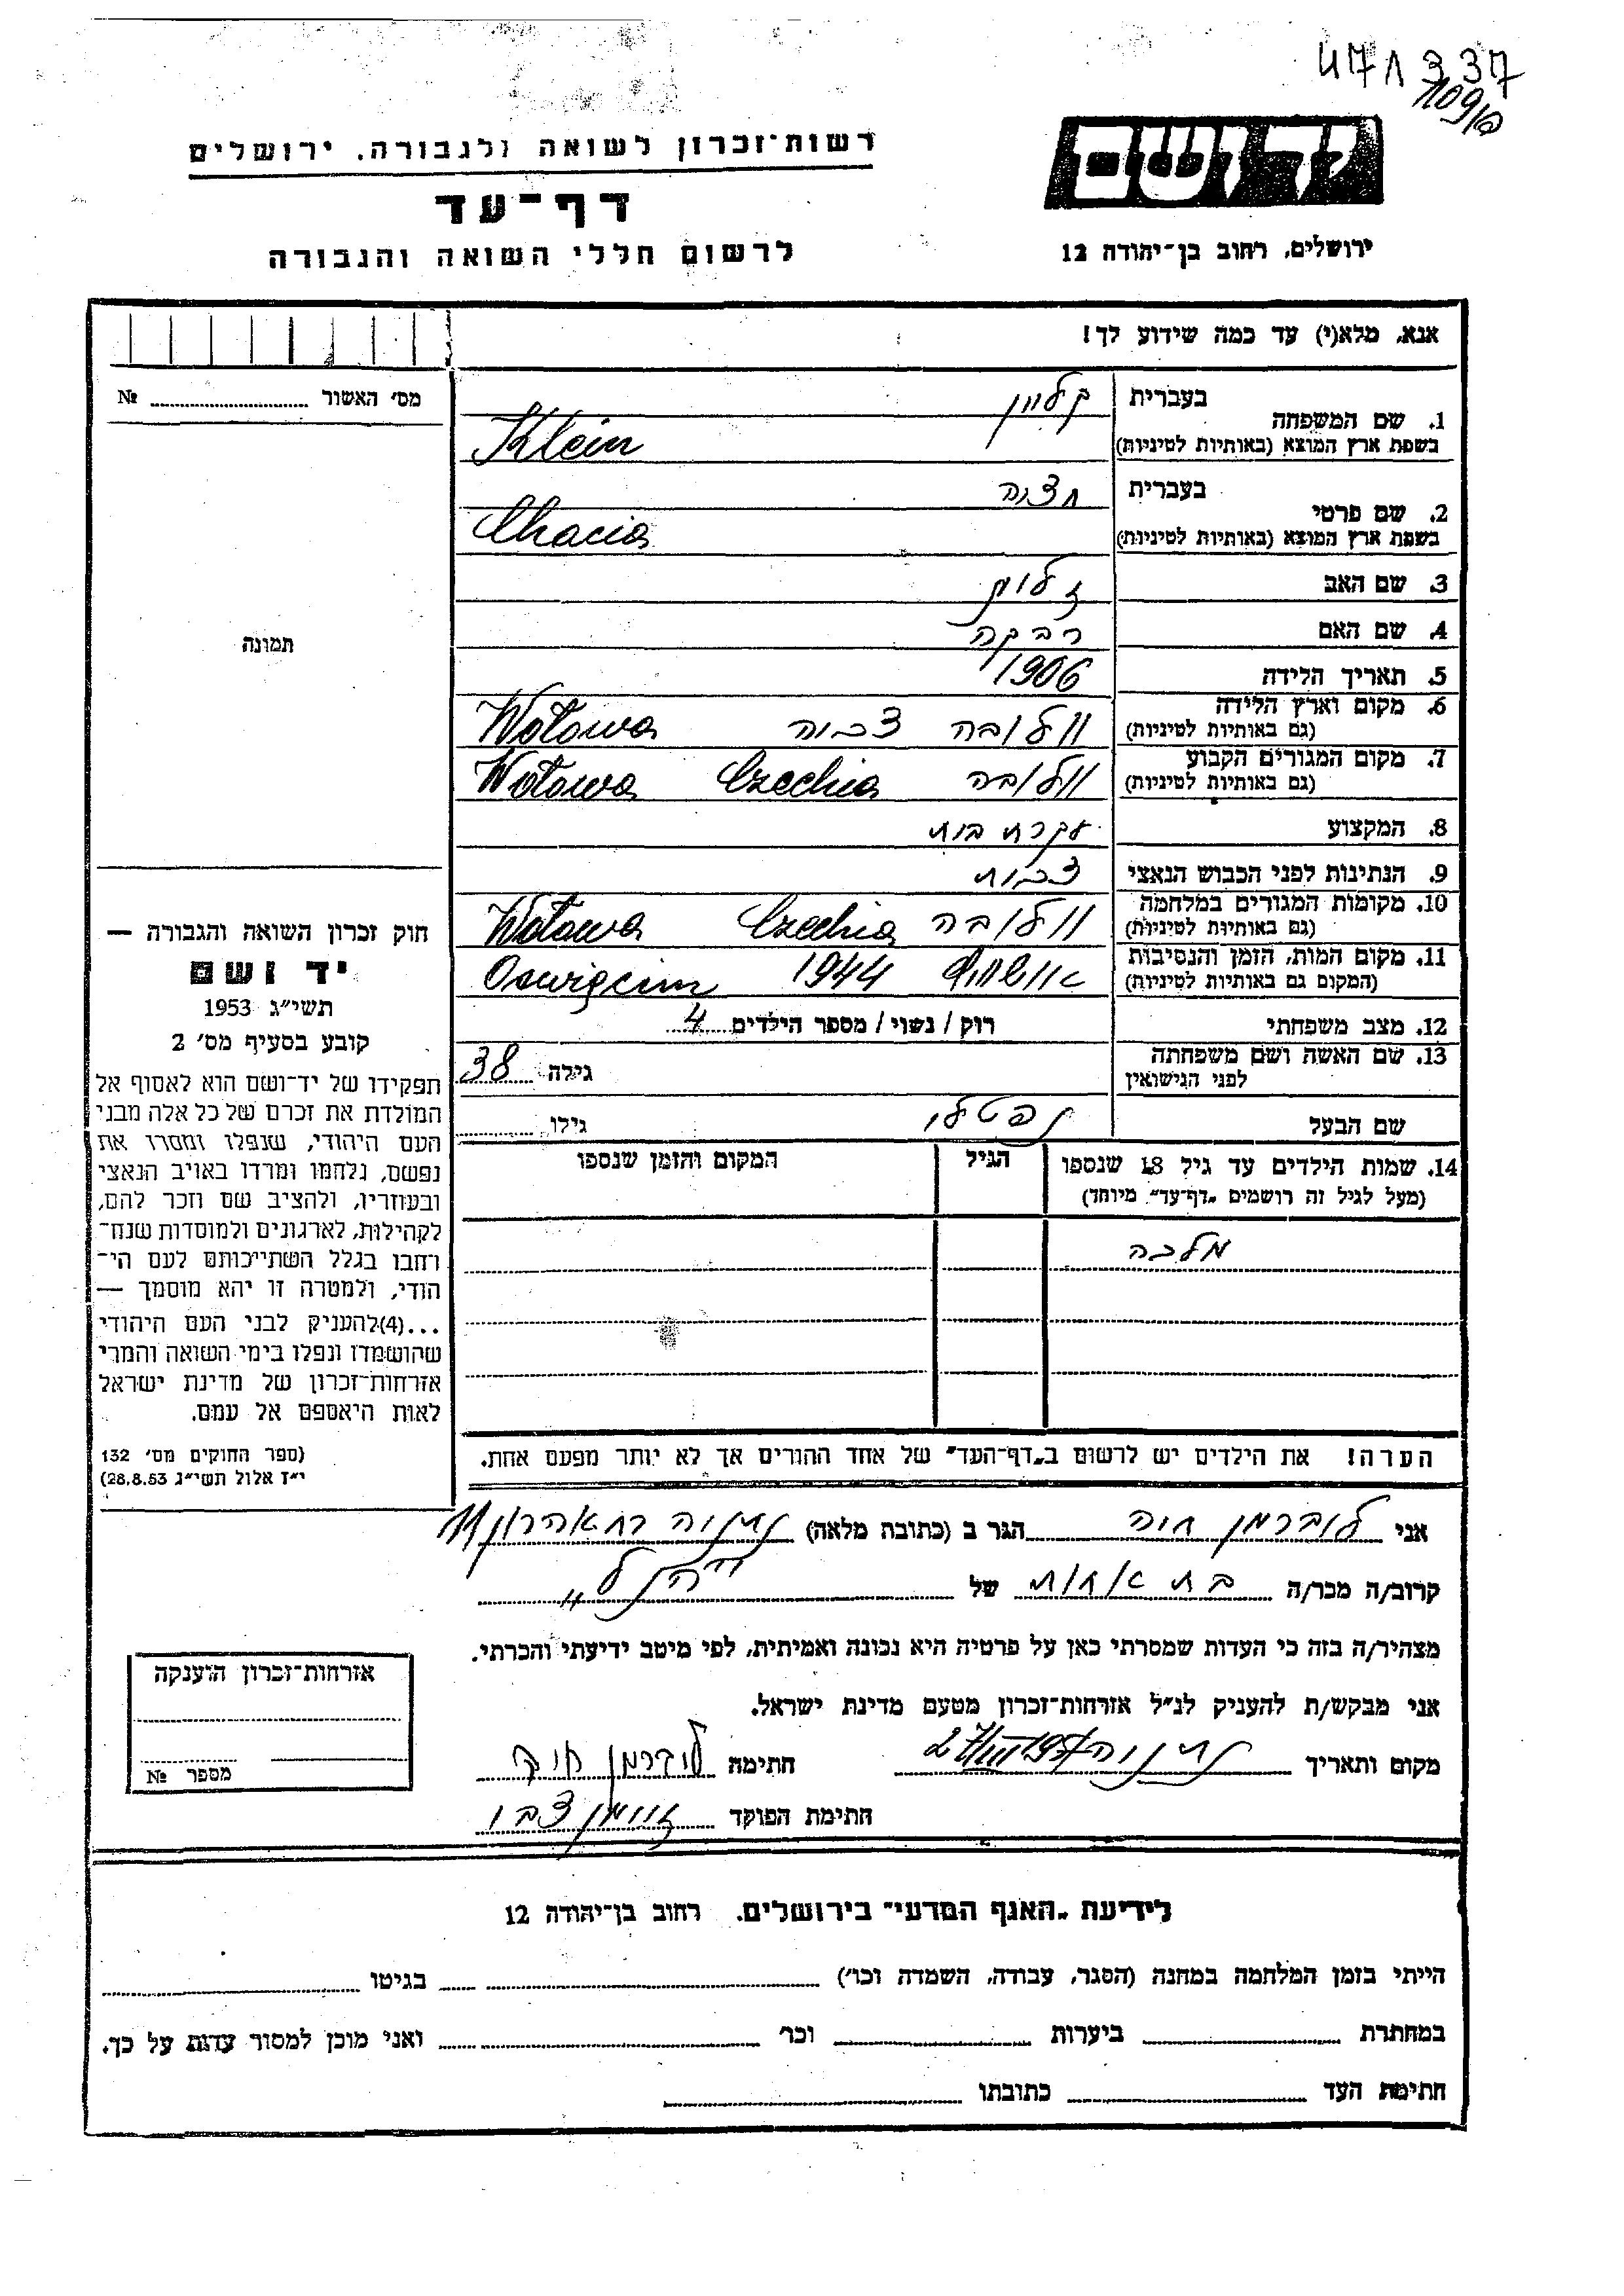 471337
109/ב
יד ושם
רשות־זכרון לשואה ולגבורה, ירושלים
דף־עד
לרשום חללי השואה והגבורה
ירושלים, רחוב בן־יהודה 12
אנא, מלא(י) עד כמה שידוע לך!
1. שם המשפחה בעברית קליין
בשפת ארץ המוצא (באותיות לטיניות) Klein
2. שם פרטי בעברית חציה
בשפת ארץ המוצא (באותיות לטיניות) Chacia
3. שם האב זלמן
4. שם האם רבקה
5. תאריך הלידה 1906
6. מקום וארץ הלידה (גם באותיות לטיניות) וולובה צכיה Wolowa
7. מקום המגורים הקבוע (גם באותיות לטיניות) וולובה Czechia Wolowa
8. המקצוע עקרת בית
9. הנתינות לפני הכבוש הנאצי צכית
10. מקומות המגורים במלחמה (גם באותיות לטיניות) וולובה Czechia Wolowa
11. מקום המות, הזמן והנסיבות (המקום גם באותיות לטיניות) אושוויץ 1944 Oswięcim
12. מצב משפחתי רוק / נשוי / מספר הילדים 4
13. שם האשה ושם משפחתה לפני הנישואין גילה 38
שם הבעל נפטלי גילו
14. שמות הילדים עד גיל 18 שנספו (מעל לגיל זה רושמים „דף־עד” מיוחד) הגיל המקום והזמן שנספו
מלכה
הערה! את הילדים יש לרשום ב„דף־העד” של אחד ההורים אך לא יותר מפעם אחת.
מס׳ האשור №
תמונה
חוק זכרון השואה והגבורה —
יד ושם
תשי״ג 1953
קובע בסעיף מס׳ 2
תפקידו של יד־ושם הוא לאסוף אל
המולדת את זכרם של כל אלה מבני
העם היהודי, שנפלו ומסרו את
נפשם, נלחמו ומרדו באויב הנאצי
ובעוזריו, ולהציב שם וזכר להם,
לקהילות, לארגונים ולמוסדות שנח־
רחבו בגלל השתייכותם לעם הי־
הודי, ולמטרה זו יהא מוסמך —
...(4)להעניק לבני העם היהודי
שהושמדו ונפלו בימי השואה והמרי
אזרחות־זכרון של מדינת ישראל
לאות היאספם אל עמם.
(ספר החוקים מס׳ 132
י״ז אלול תשי״ג 28.8.53)
אני ליברמן חיה הגר ב (כתובת מלאה) נתניה
קרוב/ה מכר/ה בת אחות של "הנ״ל"
מצהיר/ה בזה כי העדות שמסרתי כאן על פרטיה היא נכונה ואמיתית, לפי מיטב ידיעתי והכרתי.
אני מבקש/ת להעניק לנ״ל אזרחות־זכרון מטעם מדינת ישראל.
מקום ותאריך נתניה חתימה ליברמן חיה
חתימת הפוקד צבי
אזרחות־זכרון הוענקה
מספר №
לידיעת „האגף המדעי” בירושלים, רחוב בן־יהודה 12
הייתי בזמן המלחמה במחנה (הסגר, עבודה, השמדה וכו׳) בגיטו
במחתרת ביערות וכו׳ ואני מוכן למסור עדות על כך.
חתימת העד כתובתו